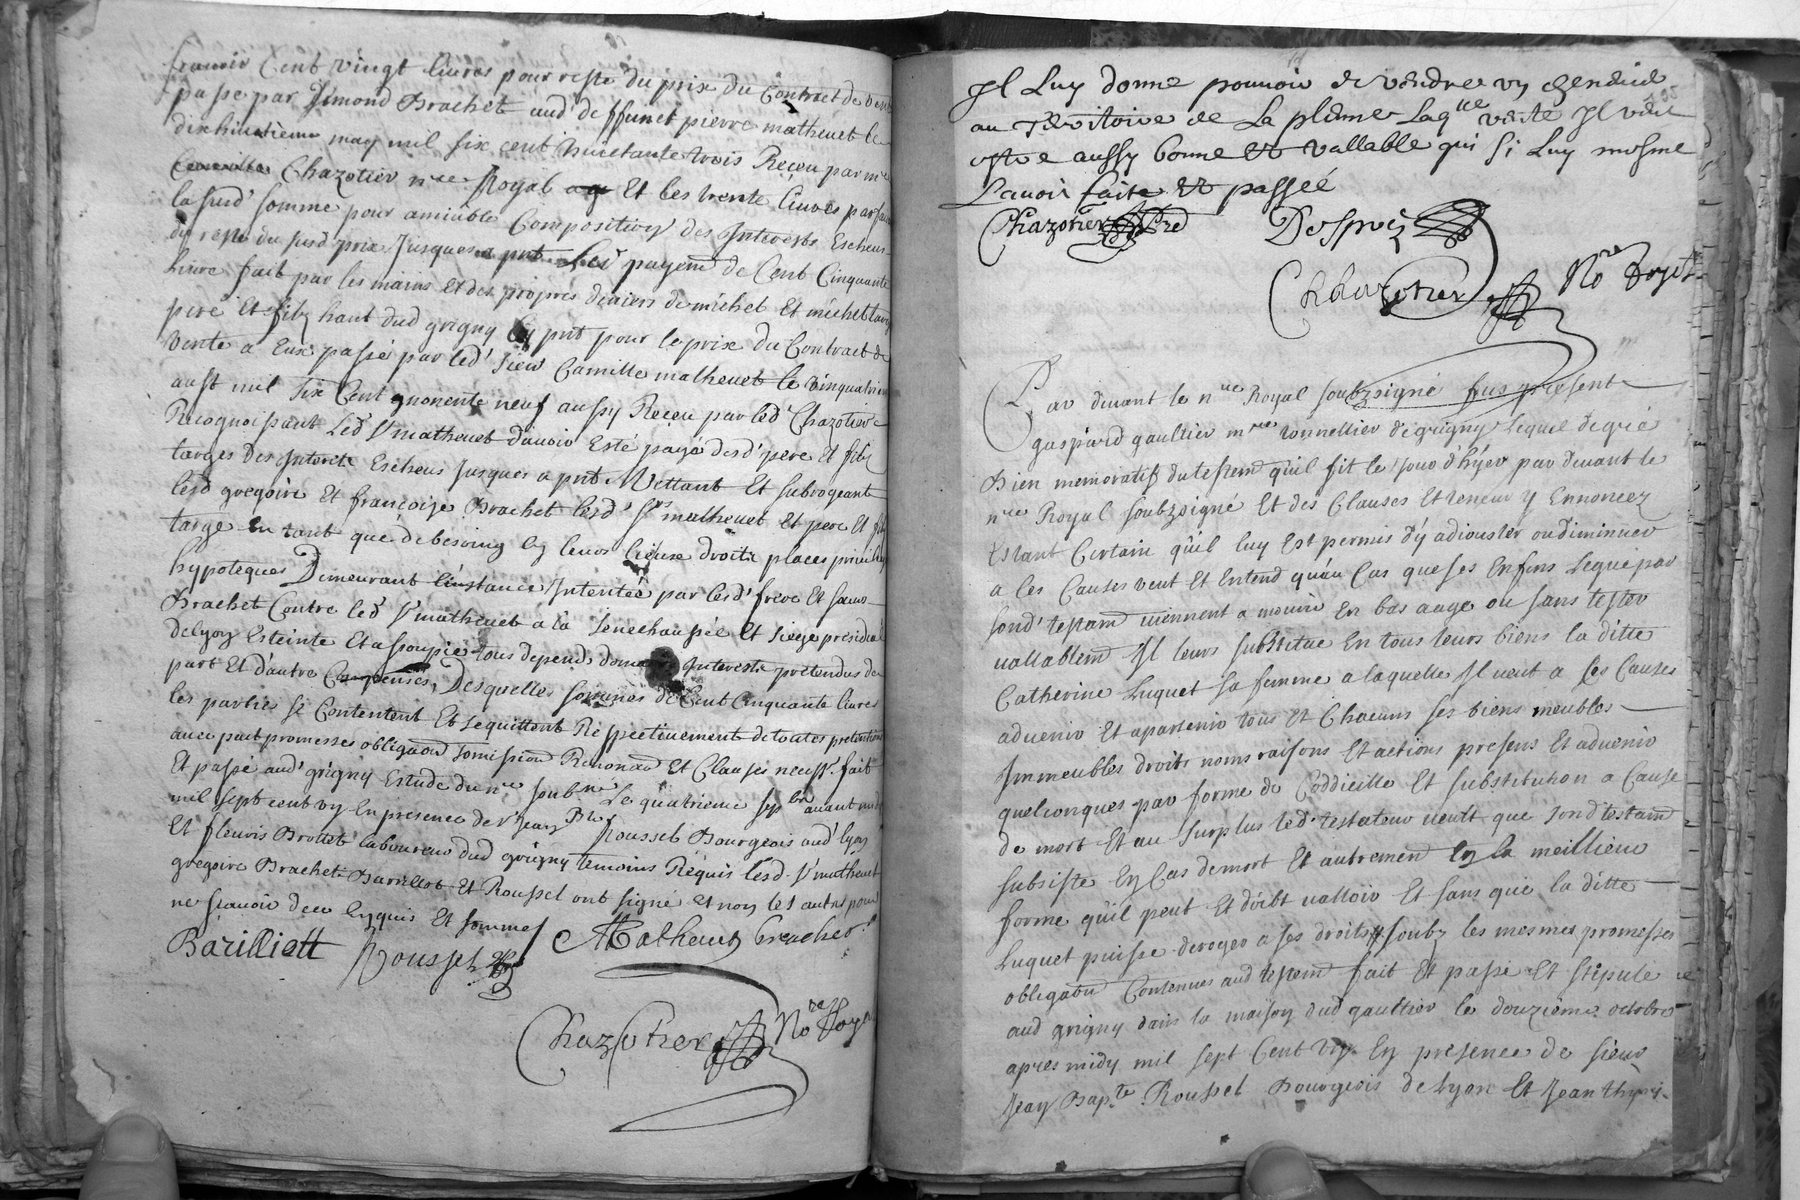 scavoir Cent vingt livres pour reste du prix du Contract de vente
passé par Simond Brachet aud deffunct pierre matheuet le
dixhuitieme may mil six cent huictante trois Receu par me
Chazotier nre Royal et les trente livres par
la susd' somme pour amiable Composition des Interests Escheus
du reste du susd prix Jusques a pnt Led payemt de Cent Cinquante
livre fait par les mains et des propres deniers de michel et michel targe
pere et filz haut dud grigny pnt pour le prix du Contract de
vente a Eux passé par led' sieur Camille matheuet le vinquatrieme
aust mil six Cent nonente neuf aussy Receu par led' Chazotier
Recognoissant Led Sr matheuet d'avoir Esté payé desd' pere et filz
targes des Interests Escheus Jusques a pnt Mettant et subrogeant
lesd gregoire et françoise Brachet lesd' Srs matheuet et pere et filz
targe En tant que de besoing En leurs lieux droits places privileges
hypoteques Demeurant l'instance Intentée par lesd' frere et soeur
Brachet Contre led Sr matheuet a la senechaussée et siege presidial
de lyon Esteinte et assoupie tous depends domages Interests pretendus de
part et d'autre Compensés, Desquelles sommes de Cent Cinquante livres
les parties se Contentent et se quittent Respectivement de toutes pretentions
avec pact promesses obligaon somission Renonaon et Clauses necessres fait
et passé aud' grigny Estude du nre soubsné Le quatrieme septbre avant midy
mil sept cent un En presence de Sr Jean Bte Roussel Bourgeois aud' lyon
et fleuris Brottet laboureur dud grigny temoins Requis lesd. Sr matheuet
gregoire Brachet Barillot et Roussel ont signé et non les autres pour
ne scavoir de ce Enquis et sommes
Barilliott Roussel Matheuet breachet
Chazotier No.re Royal
Il Luy donne pouvoir de vendre un
au territoire de La plesmes Laqlle vente Il veut
estre aussy bonne et vallable qui si Luy mesme
Lavoir faite et passeé
Chazotier Despré
Chazotier No.re Royal
Par devant le nre Royal soubzsigné fus present
gaspard gaultier mre tonnellier de grigny lequel de gré
Bien memoratif du testemt qu'il fit le jour d'hyer par devant le
nre Royal soubzsigné et des Clauses et teneur y Ennoncez
Estant Certain qu'il luy Est permis d'y adiouster ou diminuer
a ces Causes veut et Entend qu'au Cas que ses Enfens legué par
sond' testamt viennent a mourir En bas aage ou sans tester
vallablemt Il leurs substitue En tous leurs biens la ditte
Catherine Luquet sa femme a laquelle Il veut a Ces Causes
advenir et apartenir tous et Chacuns ses biens meubles
Immeubles droits noms raisons et actions presens et advenir
quelconques par forme de Coddicille et substitution a Cause
de mort et au surplus led' testateur veult que sond' testamt
subsiste En Cas de mort et autrement En la meillieur
forme qu'il peut et doibt valloir et sans que la ditte
Luquet puisse deroger a ses droits soubz les mesmes promesses
obligaons Contenues aud testemt fait et passé et stipulé
aud grigny dans la maison dud gaultier le douzieme octobre
apres midy mil sept Cent un En presence de sieur
Jean Bap.te Roussel Bourgeois de lyon et Jean